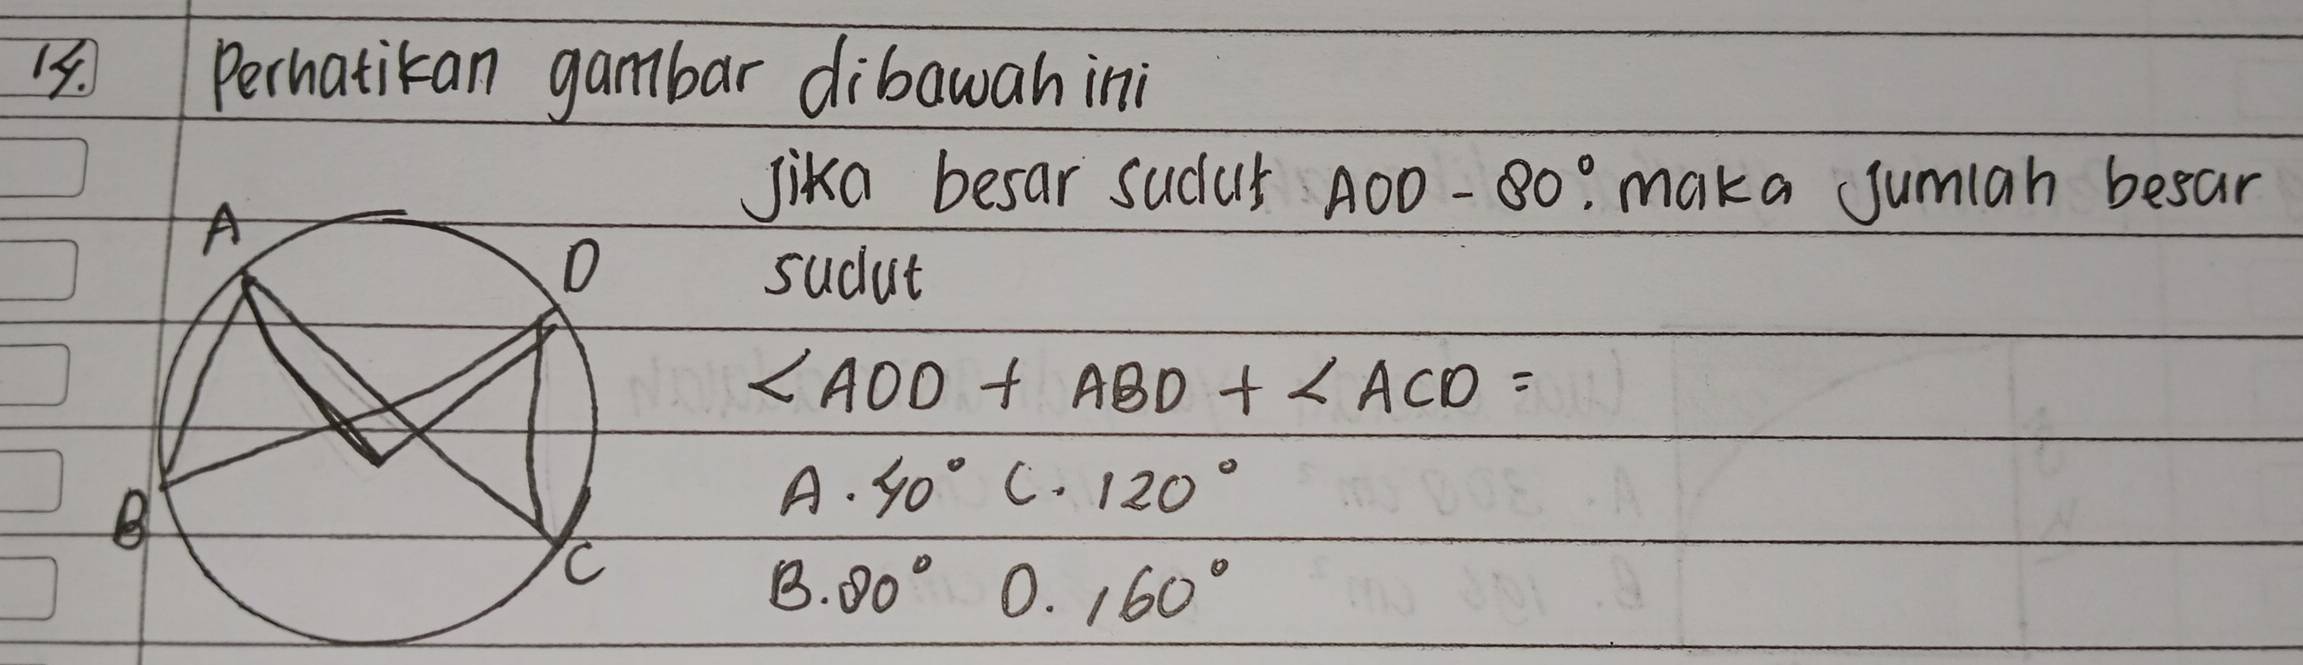 14. Perhatikan gambar dibawah ini
Jika besar sudut AOD - 80°. maka jumlah besar
sudut
A
D
<AOD + ABD + <ACD =
A. 40° C. 120°
B
C
B. 80° D. 160°